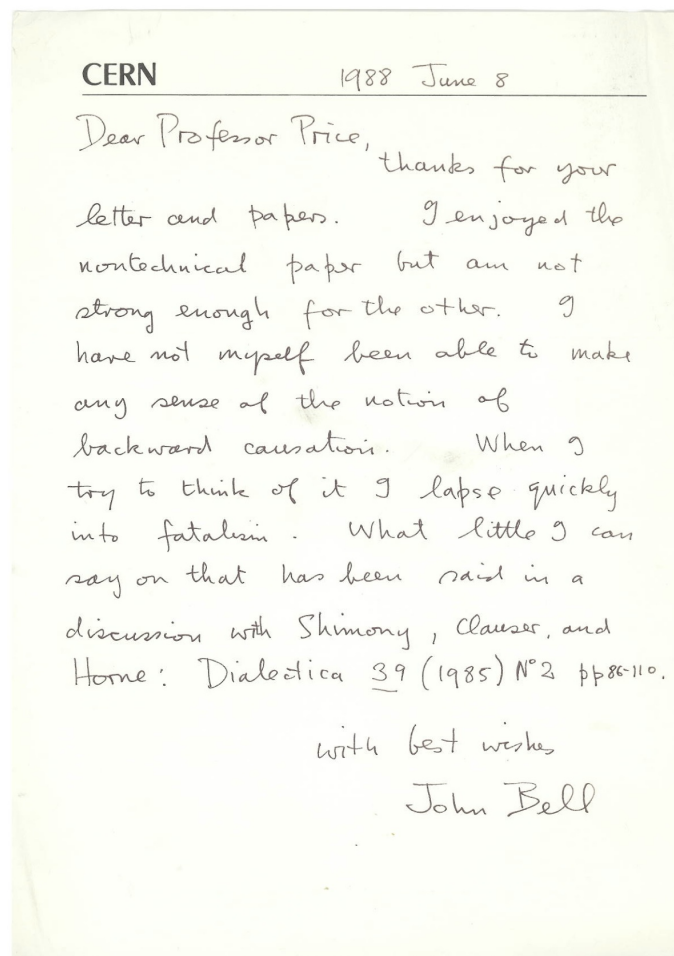 CERN 1988 June 8
Dear Professor Price,
thanks for your
letter and papers. I enjoyed the
nontechnical paper but am not
strong enough for the other. I
have not myself been able to make
any sense of the notion of
backward causation. When I
try to think of it I lapse quickly
into fatalism. What little I can
say on that has been said in a
discussion with Shimony, Clauser, and
Horne: Dialectica 39 (1985) N°2 pp86-110.
with best wishes
John Bell